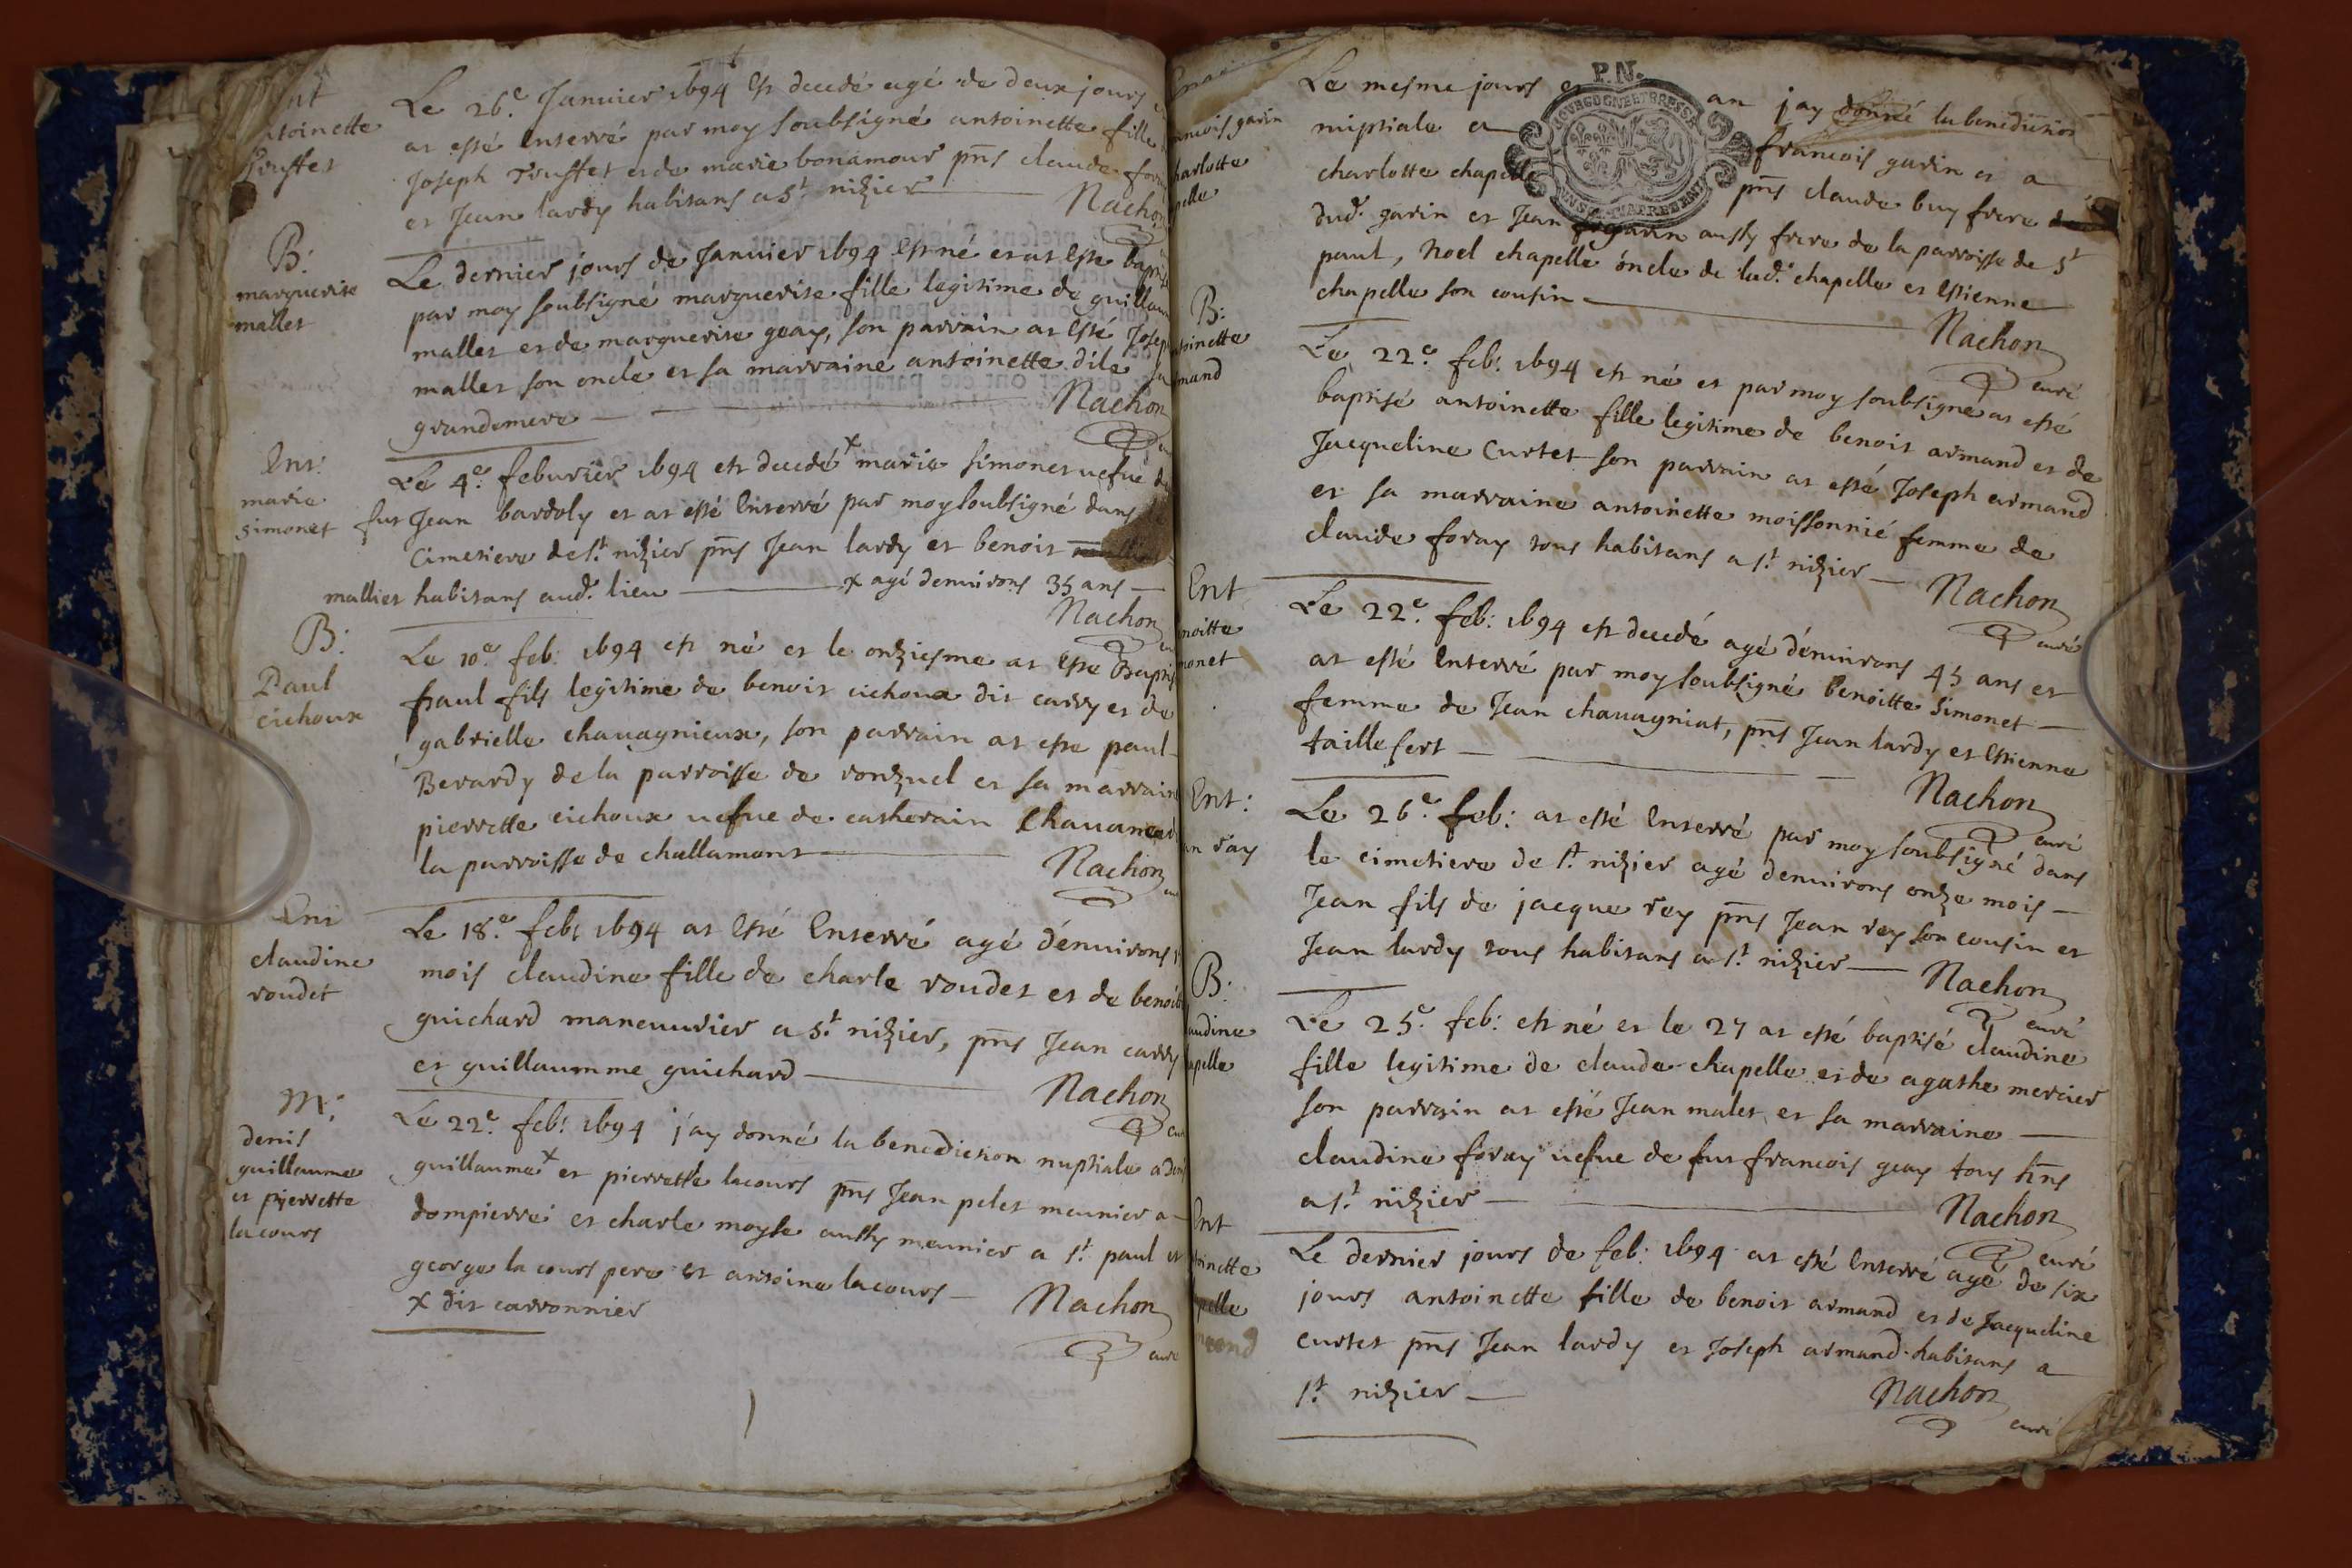 Ent
antoinette
Truffet
Le 26e Januier 1694 est decedé agé de deux jours et
at esté Enterré par moy soubsigné antoinette fille
Joseph truffet et de marie bonamour pñs claude foray
et Jean lardy habitans a St nizier
Nachon
B:
marguerite
mallet
Le dernier jours de Januier 1694 est né et at este bapt
par moy soubsigné marguerite fille legitime de guillau
mallet et de marguerite geay, son parrain at esté Joseph
mallet son oncle et sa marraine antoinette dile sa
grandemere
Nachon
Ent:
marie
simonet
Le 4e feburier 1694 est decedé x marie simonet uefue de
fut Jean bardoly et at esté Enterré par moy soubsigné dans
Cimetiere de st nizier pñs Jean lardy et benoit
malliet habitans aud. lieu x agé denuirons 35 ans
Nachon
B:
Paul
cichoux
Le 10e feb: 1694 est né et le onziesme at este Baptis
paul fils legitime de benoit cichoux dit carry et de
gabrielle chauagnieux, son parrain at este paul
Berardy de la parroisse de ronzuel et sa marrain
pierrette cichoux uefue de catherain Chauance
la parroisse de challamont
Nachon
Ent
claudine
roudet
Le 18e feb: 1694 at Esté Enterré agé dénuirons
mois claudine fille de charle roudet et de benoit
guichard maneuurier a St nizier, pñs Jean carry
et guillaumme guichard
Nachon
M:
denis
guillaume
et pierrette
lacours
Le 22e feb: 1694 j'ay donné la benediction nuptiale a deni
guillaume x et pierrette lacours pñs Jean pelet meunier a
dompierre et charle moyse aussy meunier a st paul et
george la cours pere et antoine lacours
x dit carronnier
Nachon
curé
francois garin
charlotte
chapelle
P.N.
Le mesme jours et an jay donné la benediction
nuptiale a francois garin et a
charlotte chapelle pñs claude buy frere
dud. garin et Jean garin aussy frere de la parroisse de St
paul, noel chapelle óncle de lad. chapelle et Estienne
chapelle son cousin
Nachon
curé
B:
antoinette
armand
Le 22e feb: 1694 est né et par moy soubsigné at esté
baptisé antoinette fille legitime de benoit armand et de
Jacqueline Curtet son parrain at esté Joseph armand
et sa marraine antoinette moissonnié femme de
claude foray tous habitans a st nizier
Nachon
curé
Ent
benoitte
simonet
Le 22e feb: 1694 est decedé agé dénuirons 45 ans et
at esté Enterré par moy soubsigné benoitte simonet
femme de Jean chauagniat, pñs Jean lardy et Estienne
taillefert
Nachon
curé
Ent:
jean ray
Le 26e feb: at esté Enterré par moy soubsigné dans
le cimetiere de st nizier agé denuirons onze mois
Jean fils de jacque rey pñs Jean rey son cousin et
Jean lardy tous habitans a st nizier
Nachon
curé
B:
claudine
chapelle
Le 25e feb: est né et le 27 at esté baptisé claudine
fille legitime de claude chapelle et de agathe mercier
son parrain at esté Jean malet et sa marraine
claudine foray uefue de fut francois geay tous hñs
a st nizier
Nachon
curé
Ent
antoinette
armand
Le dernier jours de feb: 1694 at esté Enterré agé de six
jours antoinette fille de benoit armand et de Jacqueline
curtet pñs Jean lardy et Joseph armand habitans a
st nizier
Nachon
curé